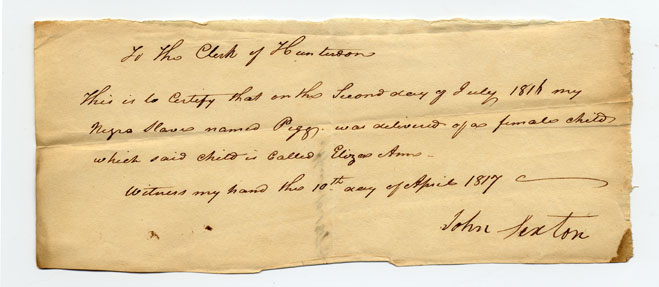 To the Clerk of Hunterdon
This is to Certify that on the Second day of July 1816 my
Negro Slave named Pegg. was delivered of a female child
which said child is called Eliza Ann
Witness my hand this 10th day of April 1817
John Sexton